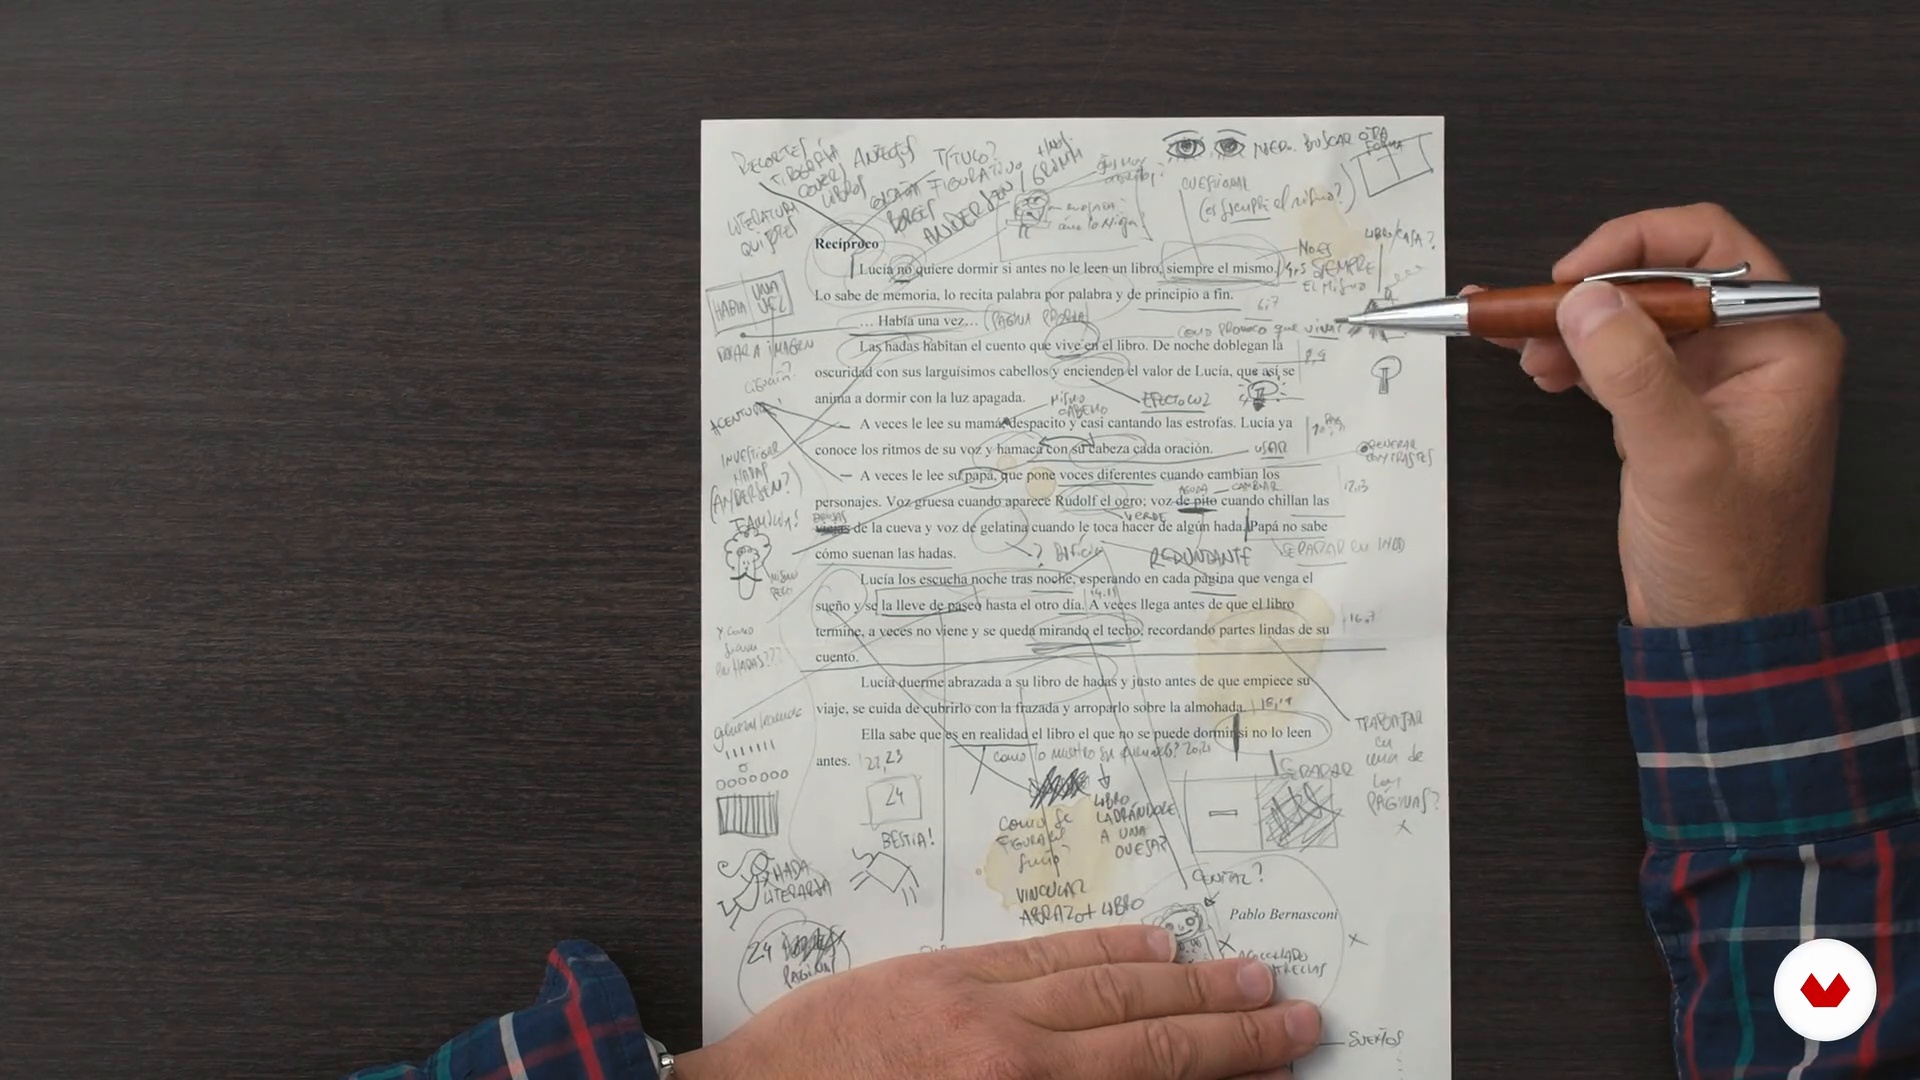 RECORTES
TIPOGRAFÍA
COVERS
LIBROS
TÍTULO?
FIGURATIVO
ANDERSEN
BUSCAR OTRA
FORMA
CUESTIONAR
(es siempre el mismo?)
LITERATURA
LIBRO/CASA?
Recíproco
Lucía no quiere dormir si antes no le leen un libro, siempre el mismo.
No es
SIEMPRE
EL MISMO
4,5
Lo sabe de memoria, lo recita palabra por palabra y de principio a fin.
6,7
HABÍA UNA
VEZ
… Había una vez… (PÁGINA PROPIA)
COMO PROVOCO QUE VIVA?
PARA IMAGEN
Las hadas habitan el cuento que vive en el libro. De noche doblegan la
8,9
oscuridad con sus larguísimos cabellos y encienden el valor de Lucía, que así se
anima a dormir con la luz apagada.
MISMO
CABELLO
EFECTO LUZ
ACENTUAR
A veces le lee su mamá despacito y casi cantando las estrofas. Lucía ya
conoce los ritmos de su voz y hamaca con su cabeza cada oración.
USAR
GENERAR
CONTRASTES
INVESTIGAR
HADAS
(ANDERSEN?)
A veces le lee su papá, que pone voces diferentes cuando cambian los
AGUDA
CAMBIAR
12,13
personajes. Voz gruesa cuando aparece Rudolf el ogro; voz de pito cuando chillan las
VERDE
BRUJAS
de la cueva y voz de gelatina cuando le toca hacer de algún hada. Papá no sabe
cómo suenan las hadas.
? DIFÍCIL
REDUNDANTE
SEPARAR EN INDD
MISMO
PELO
Lucía los escucha noche tras noche, esperando en cada página que venga el
14,15
sueño y se la lleve de paseo hasta el otro día. A veces llega antes de que el libro
termine, a veces no viene y se queda mirando el techo, recordando partes lindas de su
16,7
cuento.
Y COMO
suenan
las HADAS???
Lucía duerme abrazada a su libro de hadas y justo antes de que empiece su
viaje, se cuida de cubrirlo con la frazada y arroparlo sobre la almohada.
18,19
Ella sabe que es en realidad el libro el que no se puede dormir si no lo leen
antes.
22,23
20,21
TRABAJAR
en
una de
las
PÁGINAS?
SEPARAR
24
BESTIA!
COMO SE
FIGURA
LIBRO
LADRÁNDOLE
A UNA
OVEJA?
HADA
LITERARIA
VINCULAR
ABRAZO + LIBRO
CENITAL?
Pablo Bernasconi
24
PÁGINAS
SUEÑOS